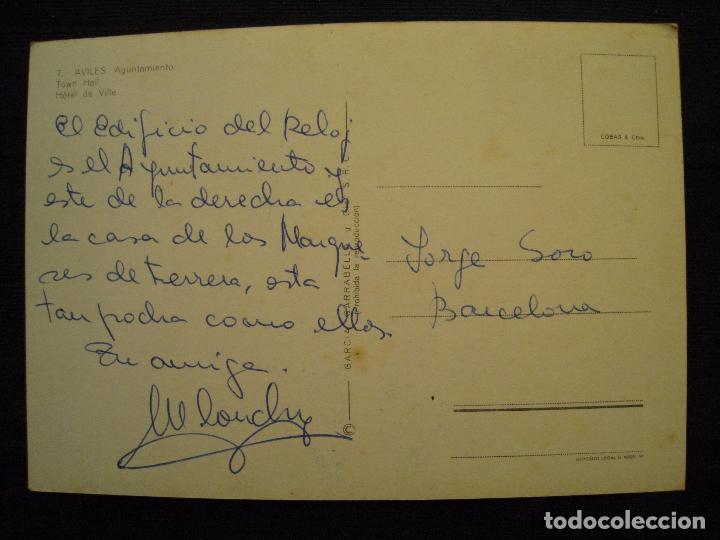 7. AVILES Ayuntamiento.
Town Hall
Hôtel de Ville
El Edificio del Reloj
es el Ayuntamiento y
este de la derecha es
la casa de los Marque
ses de Ferrera, esta
tan pocha como ellos
Tu amiga.
COBAS & Cía.
Jorge Soro
Barcelona
(Prohibida la reproducción)
©
DEPOSITO LEGAL B
todocoleccion
todocoleccion.net